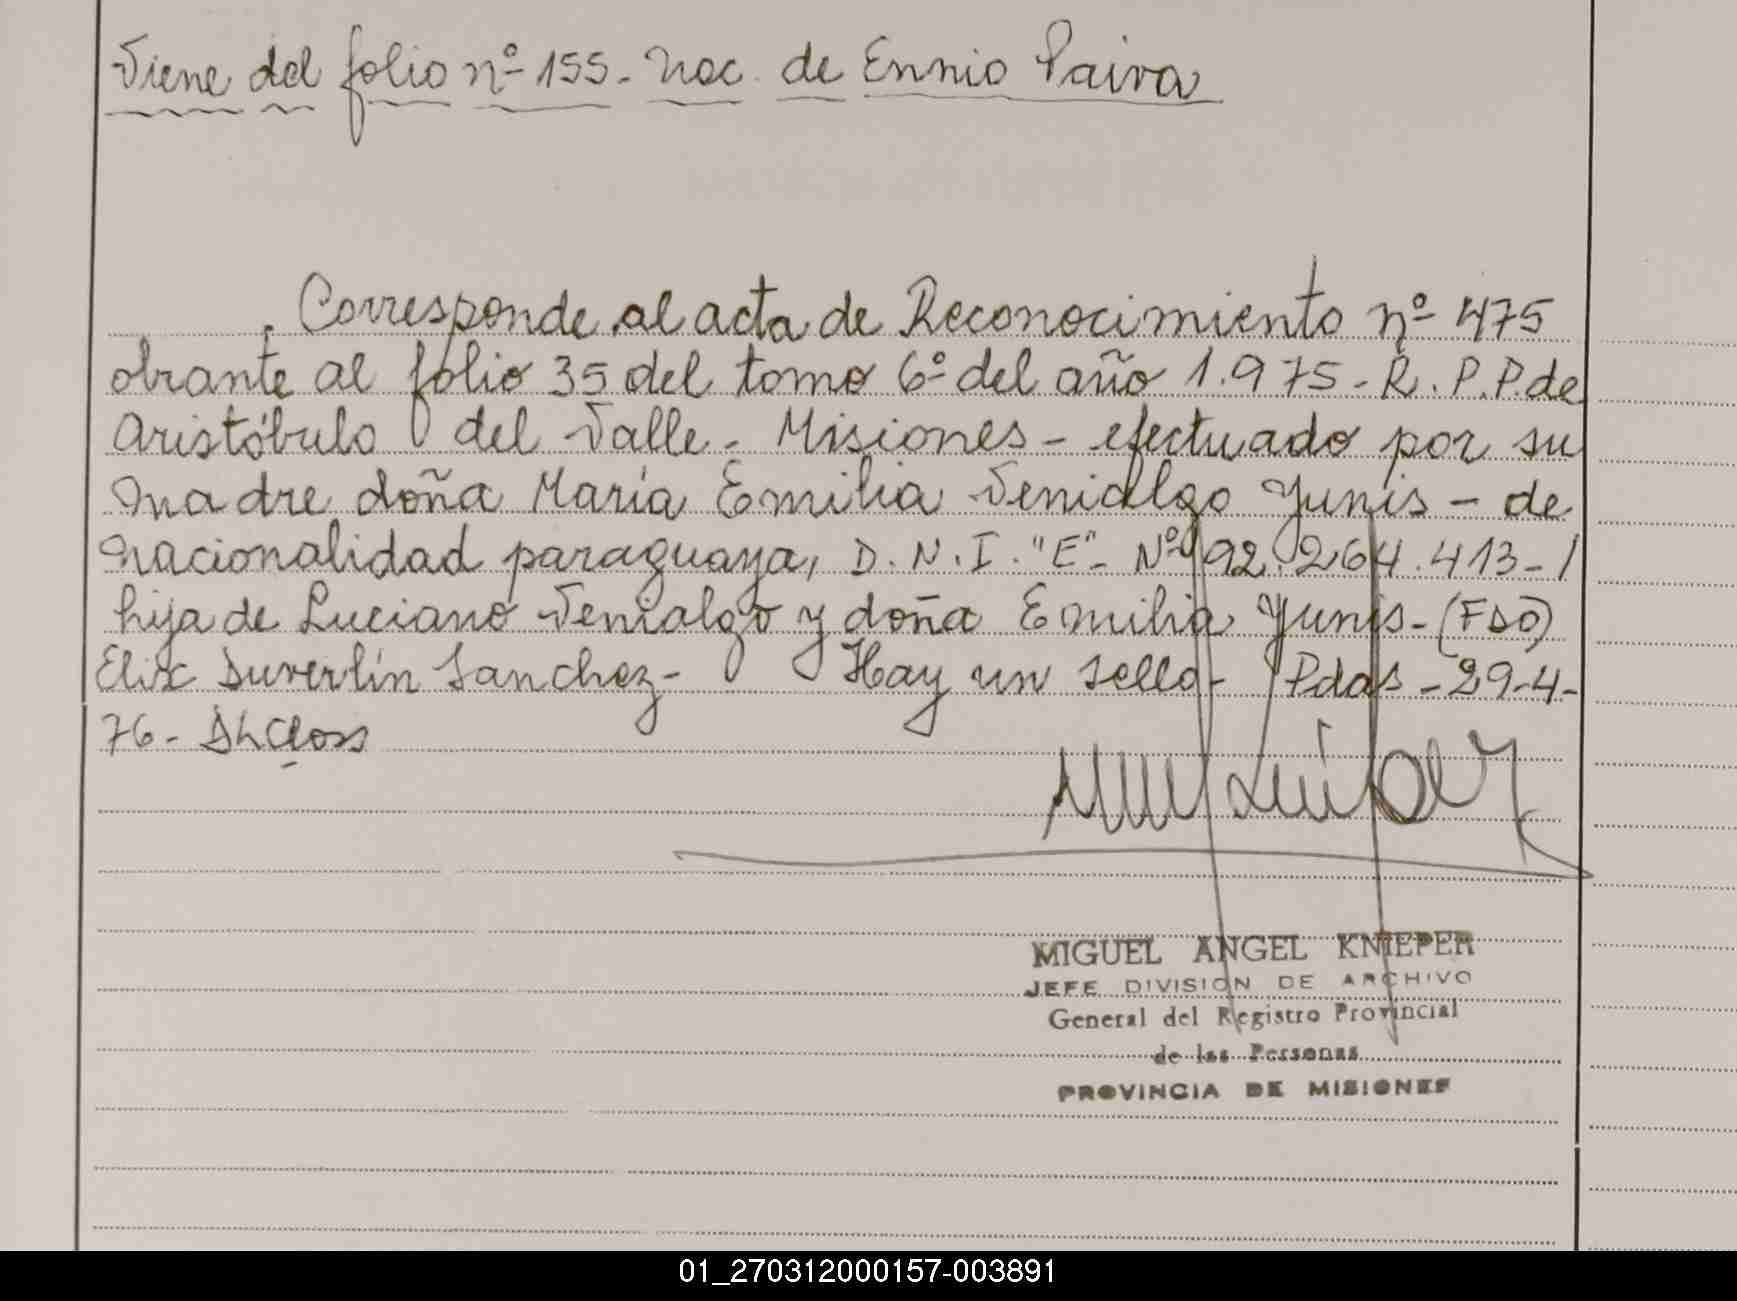 Viene del folio nº 155 - Nac. de Ennio Paiva
Corresponde al acta de Reconocimiento nº 475
obrante al folio 35 del tomo 6º del año 1.975 - R. P. P. de
Aristóbulo del Valle - Misiones - efectuado por su
madre doña María Emilia Venialgo Yunis - de
nacionalidad paraguaya, D. N. I. "E" - Nº 92.264.413 - /
hija de Luciano Venialgo y doña Emilia Yunis - (FDO)
Elix Duverlín Sanchez - Hay un sello - Pdas - 29-4-
76 -
MIGUEL ANGEL KNIEPER
JEFE DIVISION DE ARCHIVO
General del Registro Provincial
de las Personas
PROVINCIA DE MISIONES
01_270312000157-003891